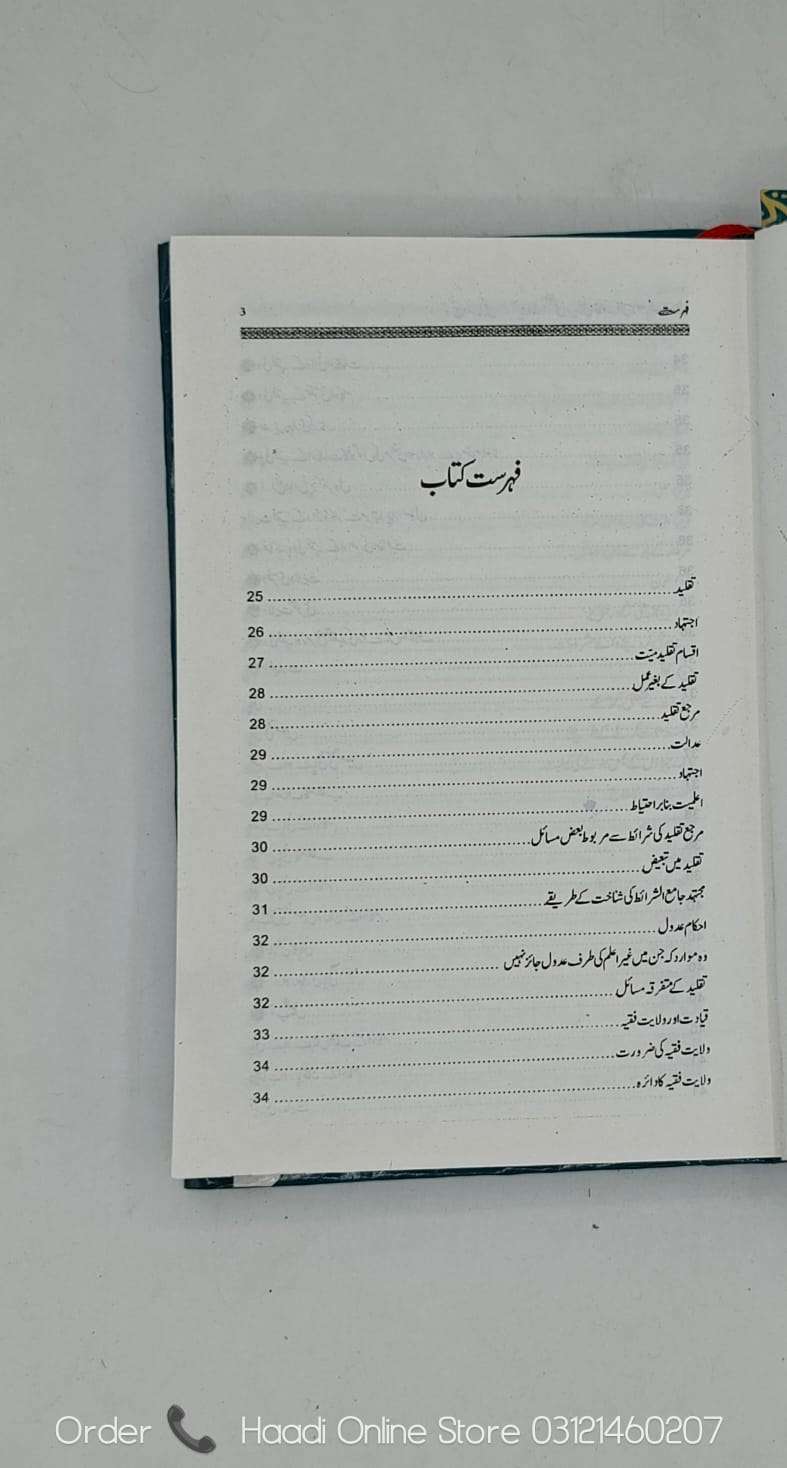 فہرست 3
فہرست کتاب
تقلید ........ 25
اجتہاد ........ 26
اقسام تقلید میّت ........ 27
تقلید کے بغیر عمل ........ 28
مرجع تقلید ........ 28
عدالت ........ 29
اجتہاد ........ 29
اعلمیت بنابر احتیاط ........ 29
مرجع تقلید کی شرائط سے مربوط بعض مسائل ........ 30
تقلید میں تبعیض ........ 30
مجتہد جامع الشرائط کی شناخت کے طریقے ........ 31
احکام عدول ........ 32
وہ موارد کہ جن میں غیر اعلم کی طرف عدول جائز نہیں ........ 32
تقلید کے متفرقہ مسائل ........ 32
قیادت اور ولایت فقیہ ........ 33
ولایت فقیہ کی ضرورت ........ 34
ولایت فقیہ کا دائرہ ........ 34
Order Haadi Online Store 03121460207